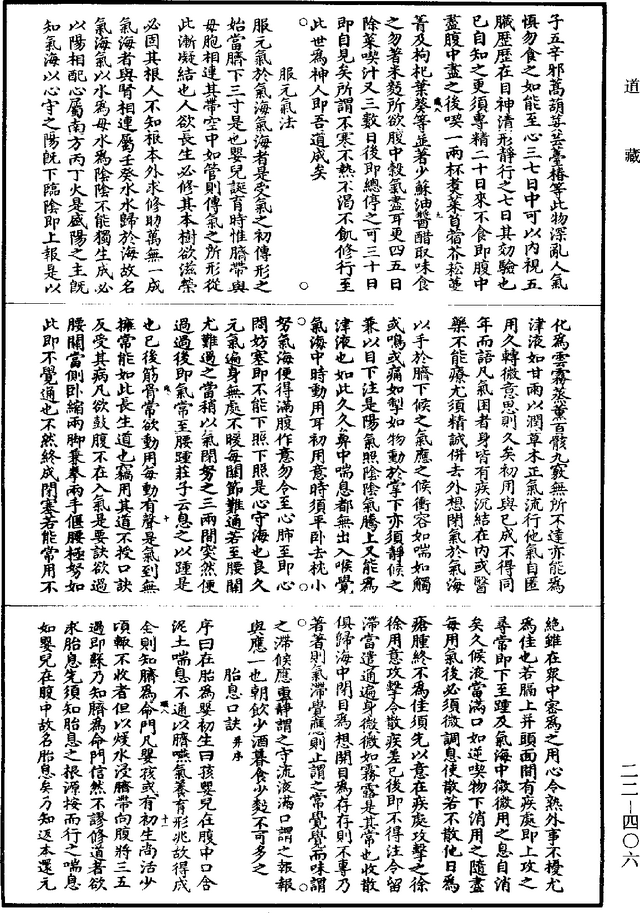 道藏
子五辛邪蒿葫荽芸薹椿等此物深亂人氣
慎勿食之如能至心三七日中可以内視五
臟歷歷在目神清形静行之七日其効驗也
已自知之更須專精二十日來不食即腹中
盡腹中盡之後喫一兩杯煮菜苜蓿芥菘蔓
菁及枸杞葉葵等並著少蘇油醬醋取味食
之勿著米麪所欲腹中穀氣盡耳更四五日
除菜喫汁又三數日後即總停之可三十日
即自見矣所謂不寒不熱不渴不飢修行至
此世為神人即吾道成矣
服元氣法
服元氣於氣海氣海者是受氣之初傳形之
始當臍下三寸是也嬰兒誕育時惟臍帶與
母胞相連其帶空中如管則傳氣之所形從
此漸凝結也人欲長生必修其本樹欲滋榮
必固其根人不知根本外求修助萬無一成
氣海者與腎相連屬壬癸水水歸於海故名
氣海氣以水為母水為陰陰不能獨生成必
以陽相配心屬南方丙丁火是盛陽之主既
知氣海以心守之陽既下臨陰即上報是以
化為雲霧蒸薰百骸九竅無所不達亦能為
津液如甘雨以潤草木正氣流行他氣自匿
用久轉微意思則久矣初用與已成不得同
年而語凡氣困者身皆有疾沉結在内或醫
藥不能療尤須精誠併去外想閉氣於氣海
以手於臍下候之氣應之候衝容如喘如觸
或鳴或痛如掣如物動於掌下亦須静候之
兼以目下注是陽氣照陰陰氣騰上又能為
津液也如此久久鼻中喘息都無出入喉覺
氣海中時動用耳初用意時須平卧去枕小
努氣海便得滿腹作意勿令至心肺至即心
悶妨塞即不能下照下照是心守海也良久
元氣遍身無處不暖每關節難通若至腰關
尤難過之當稍以氣閉努之三兩閉突然便
過過後即氣常至腰踵莊子云息之以踵是
也已後筋骨常欲動用每動有聲是氣到無
擁常能如此長生道也竊用其道不授口訣
反受其病凡欲鼓腹不在入氣是要訣欲過
腰關當側卧縮兩脚𢹂拳兩手偃腰極努如
此即不覺通也不然終成閉塞若能常用不
絶雖在衆中密為之用心令熱外事不擾尤
為佳也若膈上并頭面間有疾處即上攻之
尋常即下至踵及氣海中微微用之息自消
矣久候液當滿口如逆喫物下消用之隨盡
每用氣後必須微調息使散若不散他日為
瘡腫終不為佳須先以意在疾處攻擊之徐
徐用意攻擊令散疾差已後即不得注令留
滯當遣通遍身微微如霧露是其常也收散
俱歸海中閉目為想開目為存存則不專乃
著著則氣滯覺應則止謂之常覺覺而味謂
之滯候應重静謂之守流液滿口謂之報報
與應一也朝飲少酒暮食少麪不可多之
胎息口訣并序
序曰在胎為嬰初生曰孩嬰兒在腹中口含
泥土喘息不通以臍嚥氣養育形兆故得成
全則知臍為命門凡嬰孩或有初生尚活少
頃輒不收者但以煖水浸臍帶向腹將三五
過即蘇乃知臍為命門信然不謬修道者欲
求胎息先須知胎息之根源按而行之喘息
如嬰兒在腹中故名胎息矣乃知返本還元
二二—四〇六